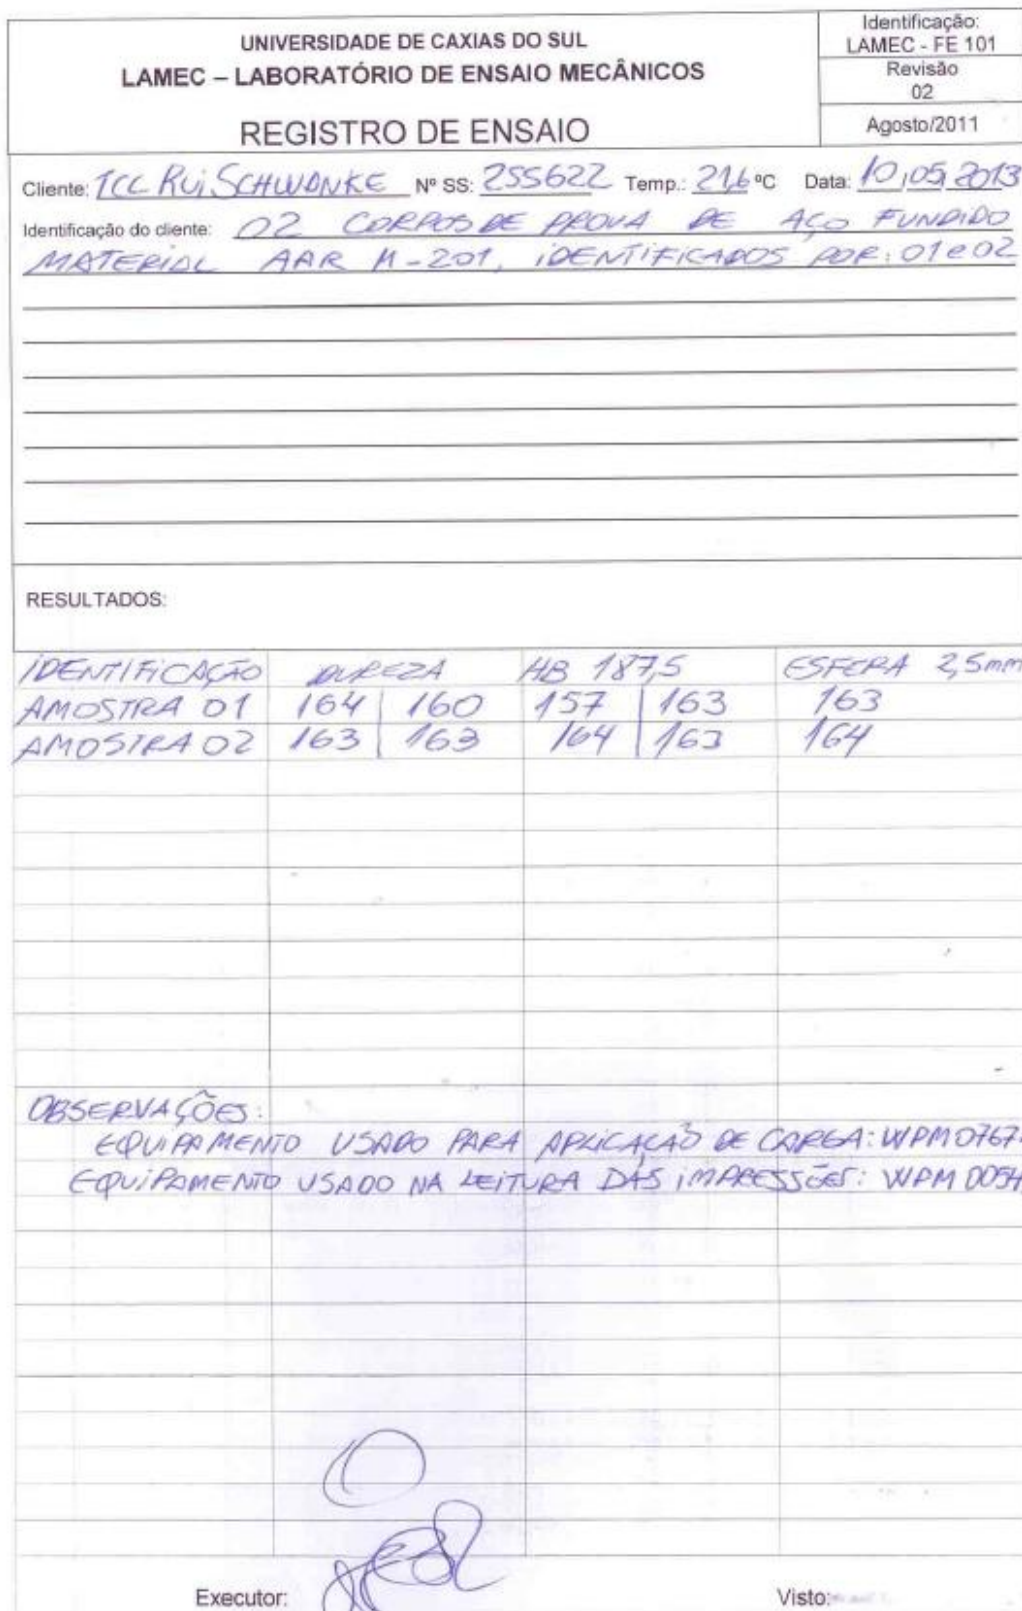 UNIVERSIDADE DE CAXIAS DO SUL
LAMEC – LABORATÓRIO DE ENSAIO MECÂNICOS
REGISTRO DE ENSAIO
Identificação:
LAMEC - FE 101
Revisão
02
Agosto/2011
Cliente: TCC RUi SCHWANKE Nº SS: 255622 Temp.: 21,6 ºC Data: 10,05,2013
Identificação do cliente: 02 CORPOS DE PROVA DE AÇO FUNDIDO
MATERIAL AAR M-201, iDENTIFICADOS POR: 01 e 02
RESULTADOS:
IDENTIFICAÇÃO DUREZA HB 187,5 ESFERA 2,5mm
AMOSTRA 01 164 160 157 163 163
AMOSTRA 02 163 163 164 163 164
OBSERVAÇÕES:
EQUIPAMENTO USADO PARA APLICAÇÃO DE CARGA: WPM 0767
EQUIPAMENTO USADO NA LEITURA DAS IMPRESSÕES: WPM 0054
Executor: Visto: